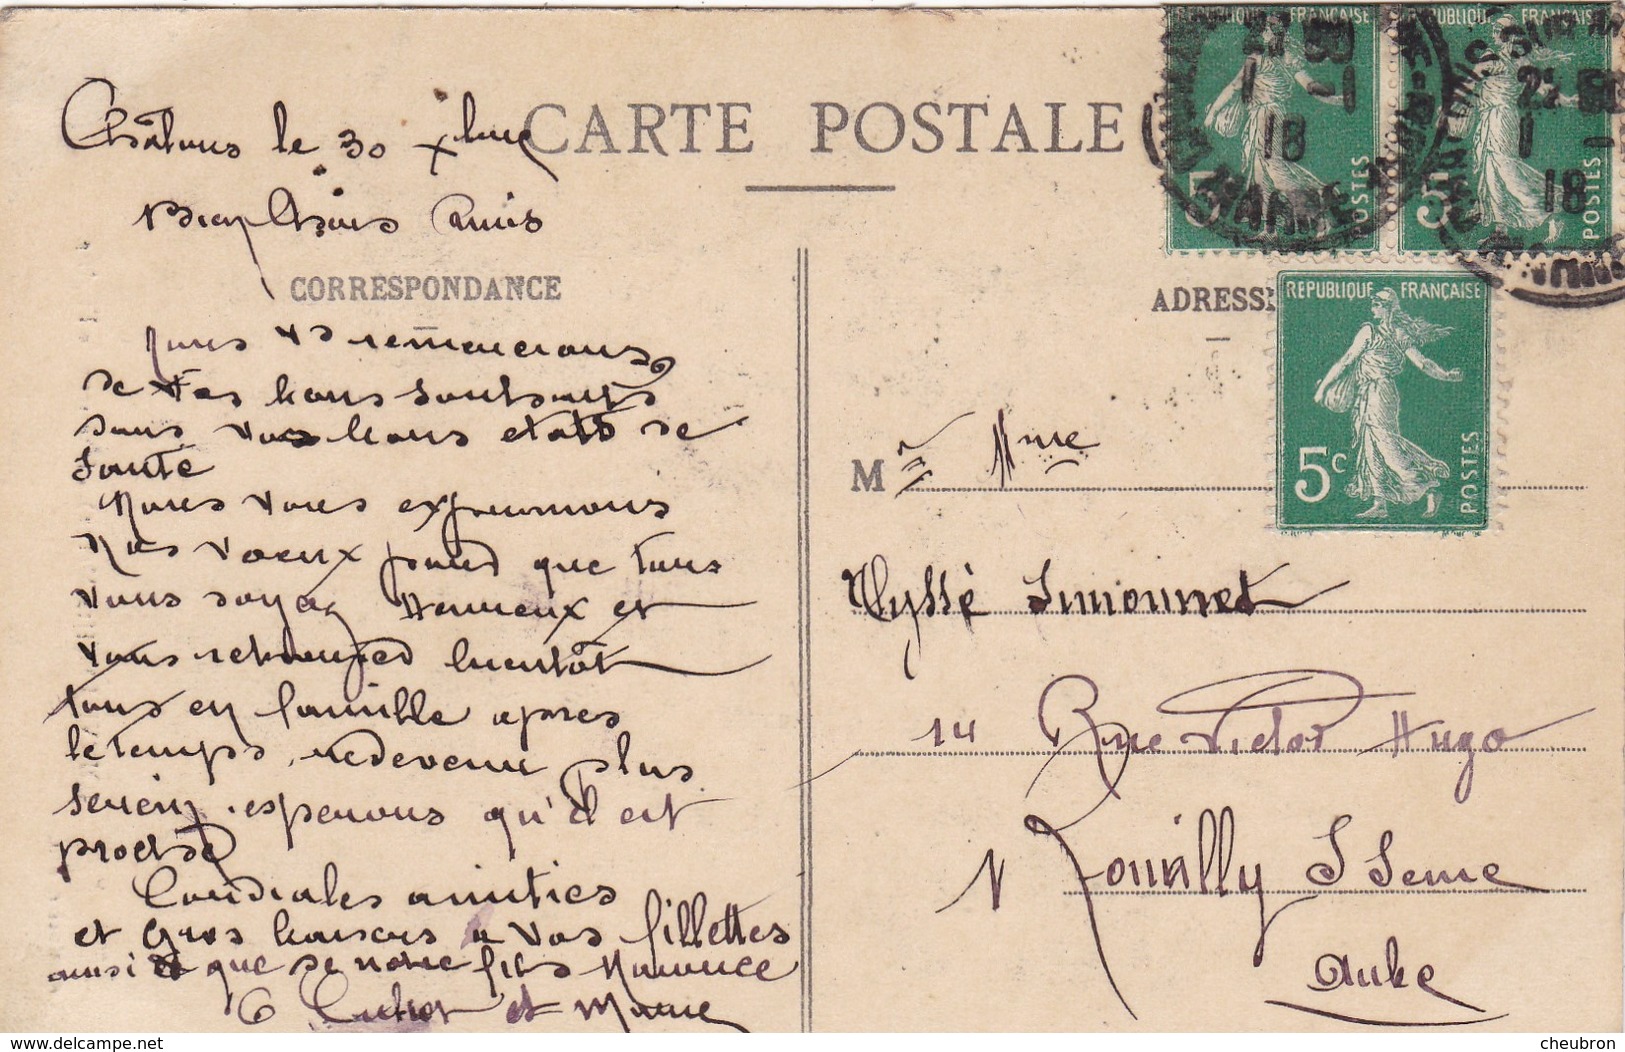 CARTE POSTALE
Châlons le 30 Xbre
Bien Chers Amis
CORRESPONDANCE
Nous vs remercions
de vos bons souhaits
dans vos bons etats de
Santé
Nous vous exprimons
Nos voeux pour que tous
vous soyez Heureux et
vous retrouver bientôt
tous en famille apres
le temps redevenu plus
serein esperons qu'il est
proche
Cordiales amitiés
et Gros baisers a vos fillettes
ainsi que de notre fils Maurice
et Marie
REPUBLIQUE FRANÇAISE
1 -1
18
MARNE
5
POSTES
REPUBLIQUE FRANÇAISE
1
18
5
POSTES
ADRESSE
REPUBLIQUE FRANÇAISE
5c
POSTES
Mr Mme
Ulysse Simonnet
14 Rue Victor Hugo
à Romilly S Seine
Aube
Publié le site www.delcampe.net
cheubron